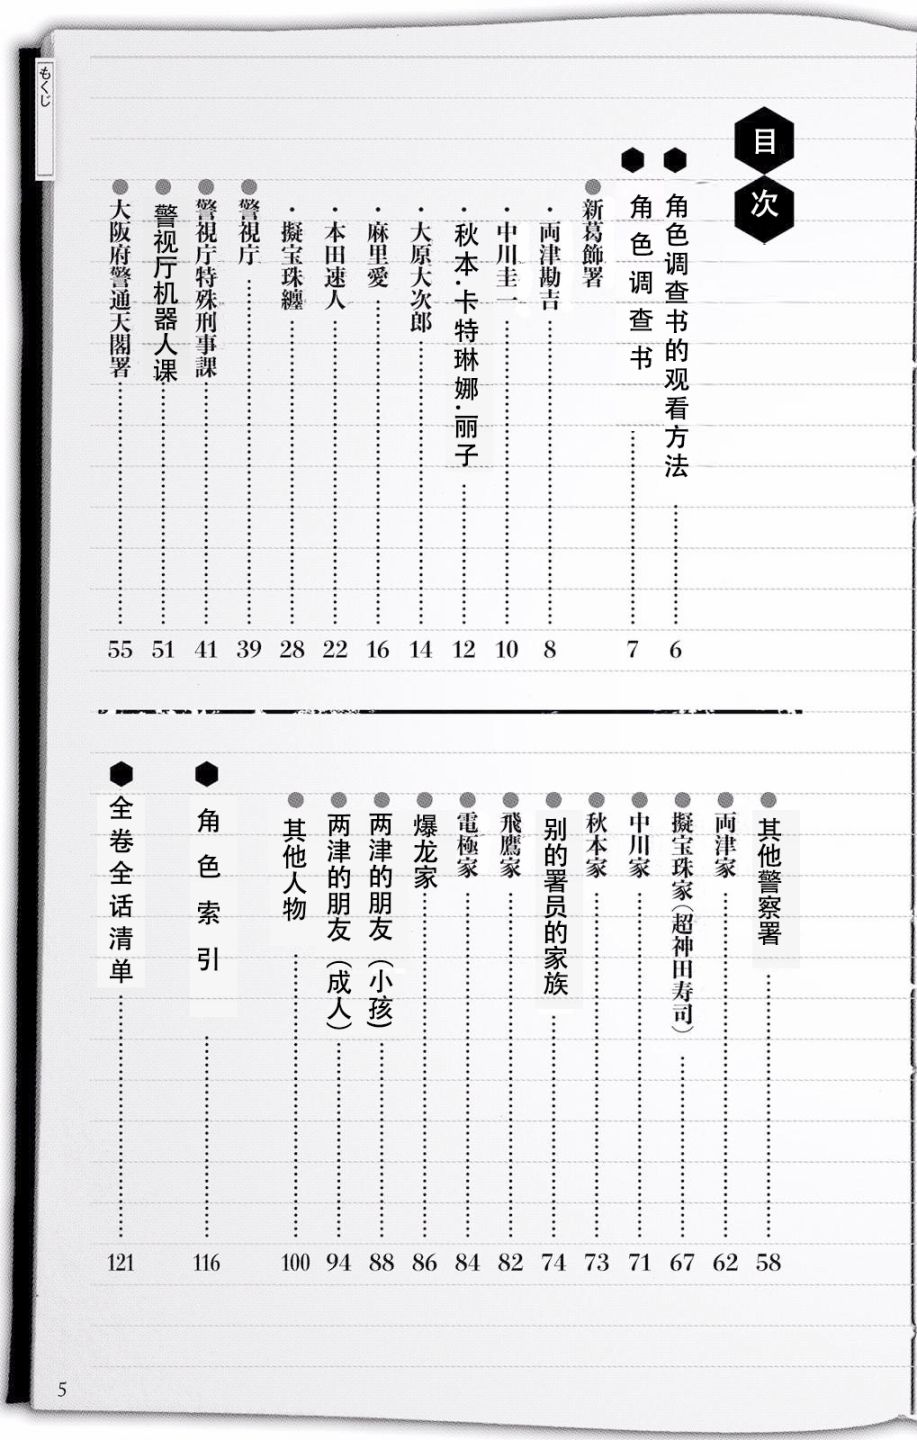 もくじ
目次
角色调查书的观看方法 6
角色调查书 7
新葛飾署
・両津勘吉 8
・中川圭一 10
・秋本·卡特琳娜·丽子 12
・大原大次郎 14
・麻里愛 16
・本田速人 22
・擬宝珠纏 28
警視庁 39
警視庁特殊刑事課 41
警视厅机器人课 51
大阪府警通天閣署 55
其他警察署 58
両津家 62
擬宝珠家（超神田寿司） 67
中川家 71
秋本家 73
别的署员的家族 74
飛鷹家 82
電極家 84
爆龙家 86
两津的朋友（小孩） 88
两津的朋友（成人） 94
其他人物 100
角色索引 116
全卷全话清单 121
5